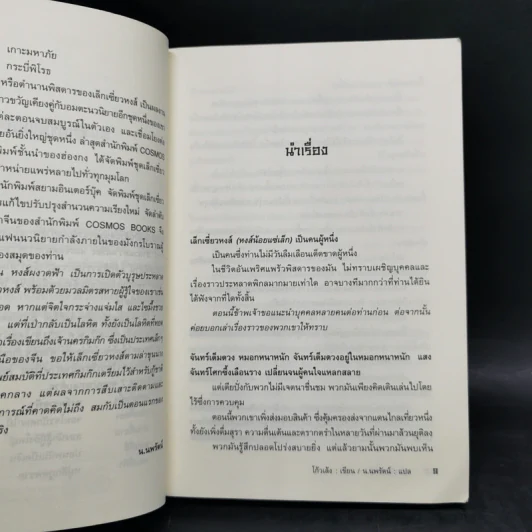 เกาะมหาภัย
กระบี่พิโรธ
หรือตำนานพิสดารของเล็กเซี่ยวหงส์ เป็นผลงาน
วขวัญเคียงคู่กับอมตะนวนิยายอีกชุดหนึ่งของ
ต่ละตอนจบสมบูรณ์ในตัวเอง และเชื่อมโยง
ยอันยิ่งใหญ่ชุดหนึ่ง ล่าสุดสำนักพิมพ์ COSMOS
พิมพ์ชั้นนำของฮ่องกง ได้จัดพิมพ์ชุดเล็กเซี่ยว
หน่ายแพร่หลายไปทั่วทุกมุมโลก
นักพิมพ์สยามอินเตอร์บุ๊ค จัดพิมพ์ชุดเล็กเซี่ยว
แก้ไขปรับปรุงสำนวนความเรียงใหม่ จัดลำดับ
จีนของสำนักพิมพ์ COSMOS BOOKS
แฟนนวนิยายกำลังภายในของมังกรโบราณ
องสมุดของท่าน
หงส์ผงาดฟ้า เป็นการเปิดตัวบุรุษประหลาด
หงส์ พร้อมด้วยมวลมิตรสหายผู้รู้ใจของเขา
อด หากแต่จิตใจกระจ่างแจ่มใส และ
แต่ที่เป่ากลับเป็นโลหิต ทั้งยังเป็นโลหิตที่
เรื่องเซียนถึงเจ้านครกิมก๊ก ซึ่งเป็นประเทศเล็กๆ
นือของจีน ขอให้เล็กเซี่ยวหงส์ตามล่าขุนนาง
พย์สมบัติที่ประเทศกิมก๊กเตรียมไว้สำหรับกู้ชาติ
คกลาง แต่ผลจากการสืบเสาะติดตามและ
การณ์ที่คาดคิดไม่ถึง สมกับเป็นตอนแรกของ
ริง
น.นพรัตน์
นำเรื่อง
เล็กเซี่ยวหงส์ (หงส์น้อยแซ่เล็ก) เป็นคนผู้หนึ่ง
เป็นคนซึ่งท่านไม่มีวันลืมเลือนเด็ดขาดผู้หนึ่ง
ในชีวิตอันเพริศแพร้วพิสดารของมัน ไม่ทราบเผชิญบุคคลและ
เรื่องราวประหลาดพิกลมากมายเท่าใด อาจบางทีมากกว่าที่ท่านได้ยิน
ได้ฟังจากที่ใดทั้งสิ้น
ตอนนี้ข้าพเจ้าขอแนะนำบุคคลหลายคนต่อท่านก่อน ต่อจากนั้น
ค่อยบอกเล่าเรื่องราวของพวกเขาให้ทราบ
จันทร์เต็มดวง หมอกหนาหนัก จันทร์เต็มดวงอยู่ในหมอกหนาหนัก แสง
จันทร์โศกซึ้งเลือนราง เปลี่ยนจนผู้คนใจแหลกสลาย
แต่เตียปั่งกับพวกไม่มีเจตนาชื่นชม พวกมันเพียงคิดเดินเล่นไปโดย
ไร้ซึ่งการควบคุม
ตอนนี้พวกเขาเพิ่งส่งมอบสินค้า ซึ่งคุ้มครองส่งจากแดนไกลเที่ยวหนึ่ง
ทั้งยังเพิ่งดื่มสุรา ความตื่นเต้นและตรากตรำในหลายวันที่ผ่านมาล้วนยุติลง
พวกมันรู้สึกปลอดโปร่งสบายยิ่ง แต่แล้วยามนั้นพวกมันพบเห็น
โก้วเล้ง : เขียน / น.นพรัตน์ : แปล